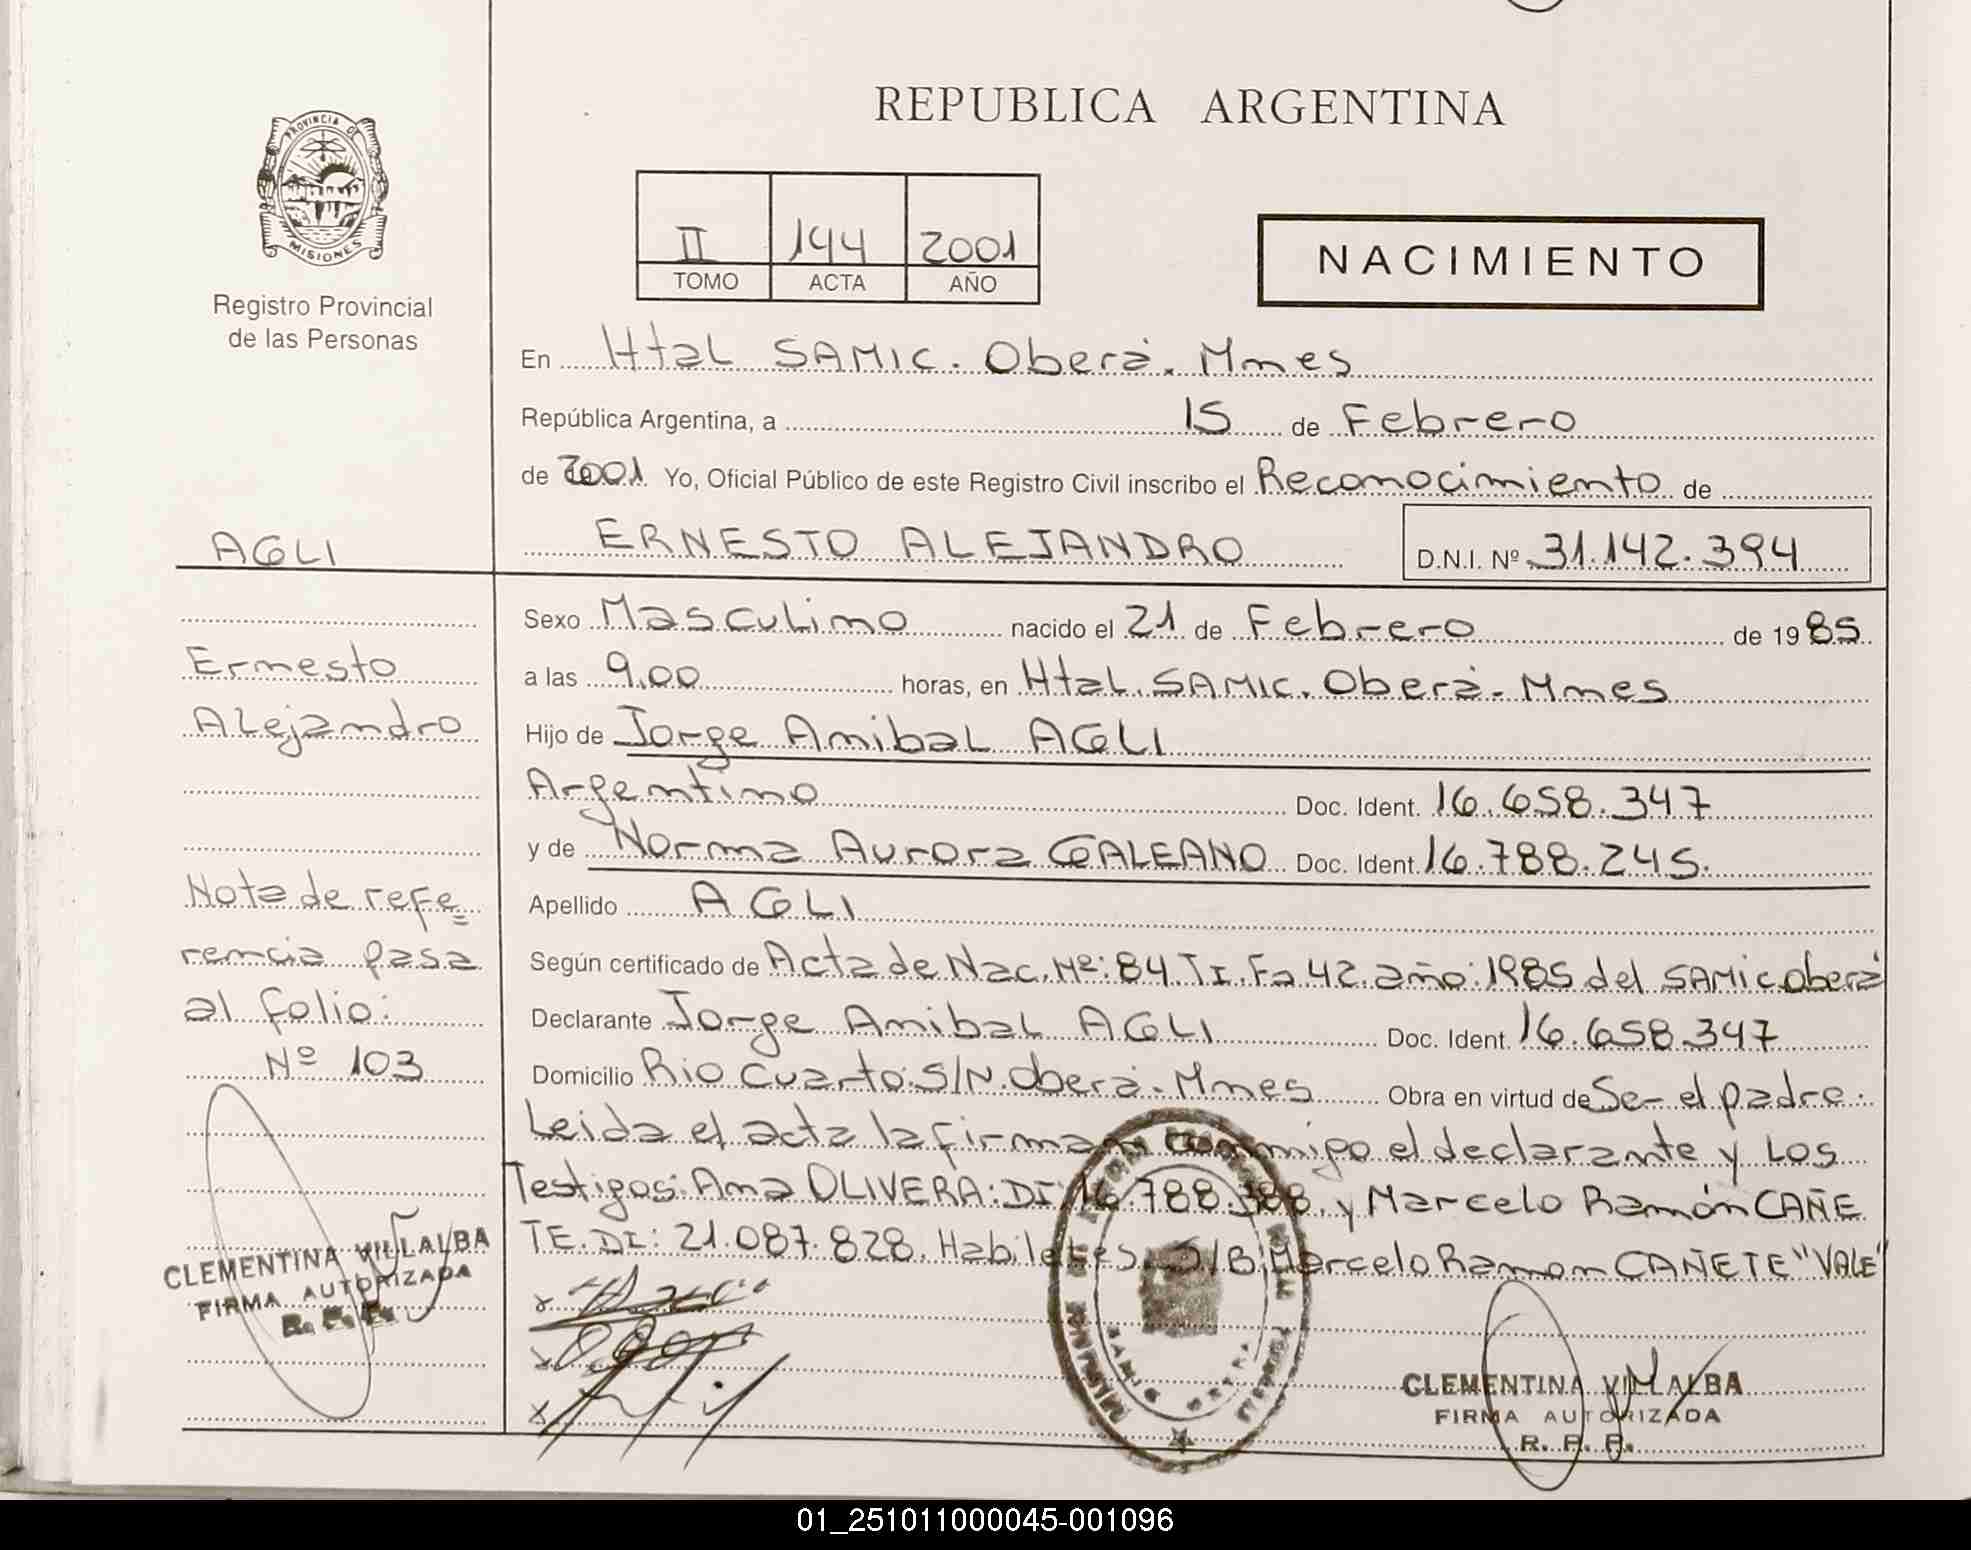 REPUBLICA ARGENTINA
PROVINCIA DE
MISIONES
Registro Provincial
de las Personas
II 144 2001
TOMO ACTA AÑO
NACIMIENTO
En Htal SAMIC. Oberá. Mnes
República Argentina, a 15 de Febrero
de 2001 Yo, Oficial Público de este Registro Civil inscribo el Reconocimiento de
ERNESTO ALEJANDRO D.N.I. Nº 31.142.394
Sexo Masculino nacido el 21 de Febrero de 1985
a las 9,00 horas, en Htal. SAMIC. Oberá. Mnes
Hijo de Jorge Anibal AGLI
Argentino Doc. Ident. 16.658.347
y de Norma Aurora GALEANO Doc. Ident. 16.788.245.
Apellido AGLI
Según certificado de Acta de Nac. Nº: 84. T I. Fo 42. año: 1985 del SAMIC. Oberá
Declarante Jorge Anibal AGLI Doc. Ident. 16.658.347
Domicilio Rio Cuarto. S/N. Oberá - Mnes Obra en virtud de Ser el padre.
Leida el acta la firman conmigo el declarante y los
Testigos: Ana OLIVERA: DI: 16.788.388. y Marcelo Ramón CAÑE
TE. DI: 21.087.828. Habiles. S/B: Marcelo Ramon CAÑETE "VALE"
CLEMENTINA VILLALBA
FIRMA AUTORIZADA
R. P. P.
AGLI
Ernesto
Alejandro
Nota de refe=
rencia pasa
al folio:
Nº 103
CLEMENTINA VILLALBA
FIRMA AUTORIZADA
R. P. P.
01_251011000045-001096